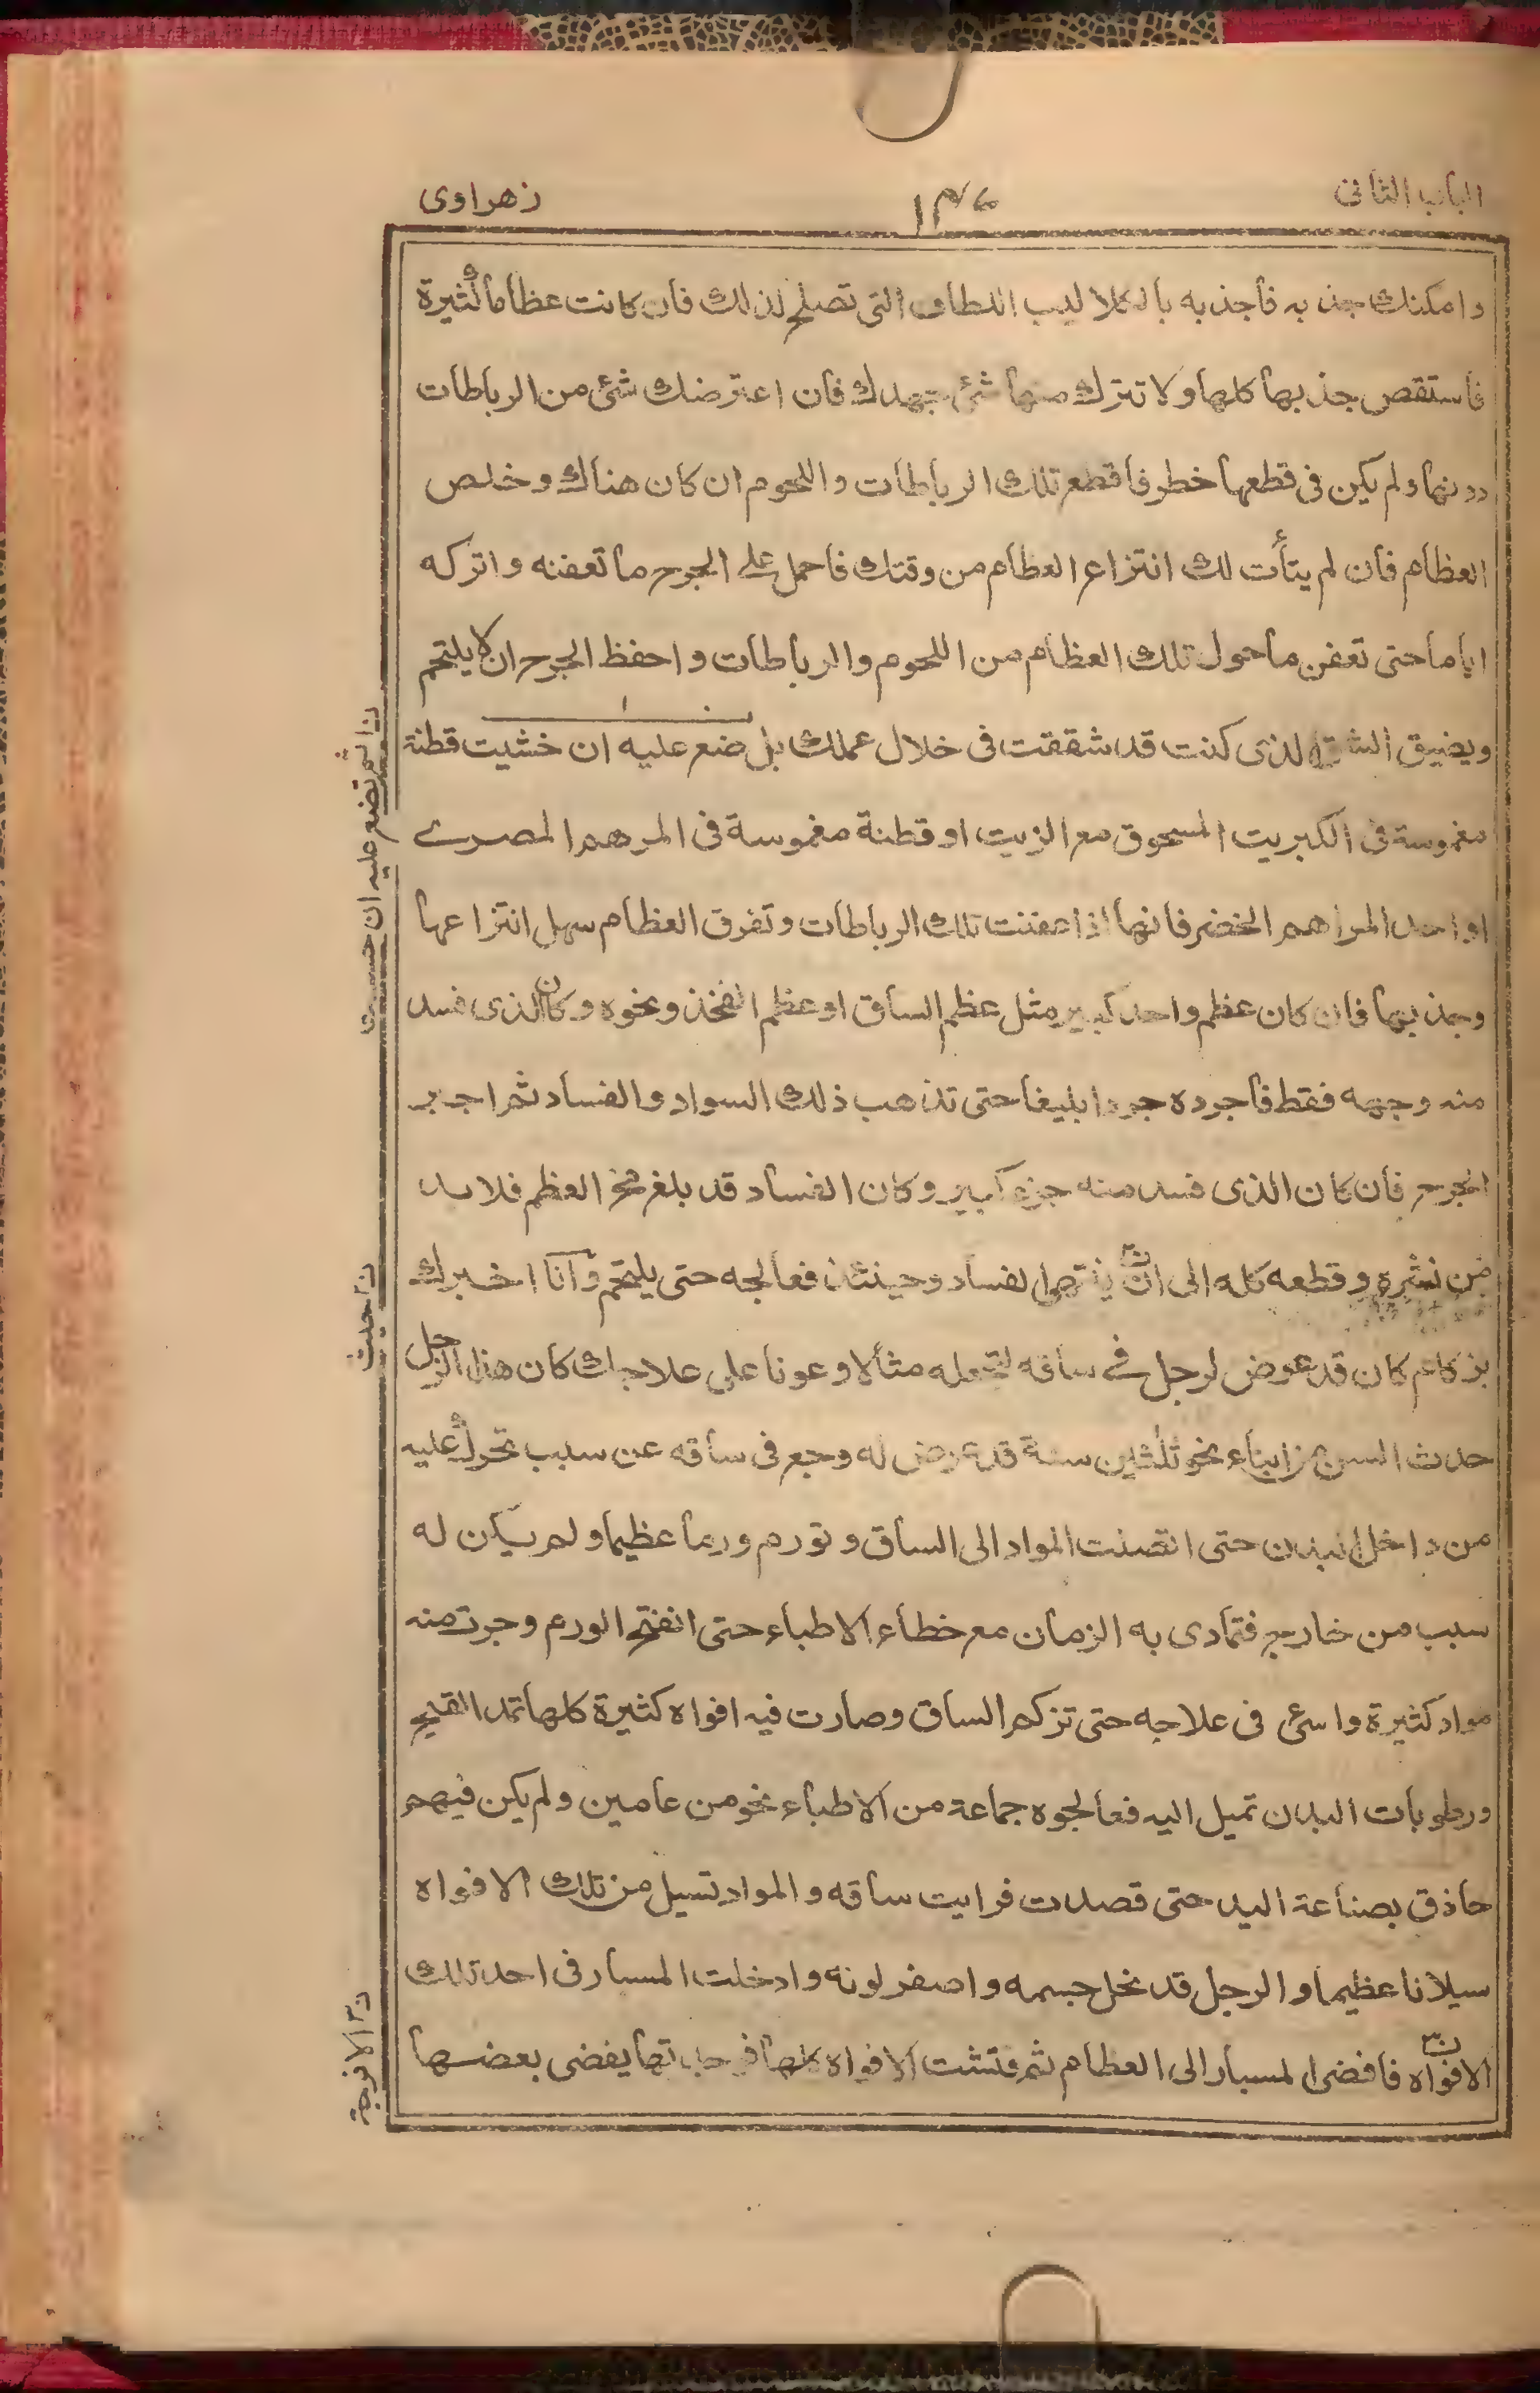 الباب الثانى
١٣٦
زهراوى
وامكنك جذبه فأجذبه بالكلاليب اللطاف التى تصلح لذلك فان كانت عظاما كثيرة
فأستقص جذبها كلها ولا تترك منها شئ جهدك فان اعترضك شئ من الرباطات
دونها ولم يكن فى قطعها خطر فأقطع تلك الرباطات واللحوم ان كان هناك وخلص
العظام فان لم يتأت لك انتزاع العظام من وقتك فاحمل على الجرح ما تعفنه واتركه
اياما حتى تعفن ما حول تلك العظام من اللحوم والرباطات واحفظ الجرح ان لا يلتحم
ويضيق الشق الذى كنت قد شققت فى خلال عملك بل ضع عليه ان خشيت قطنة
مغموسة فى الكبريت المسحوق مع الزيت او قطنة مغموسة فى المرهم المصرے
او احد المراهم الخضر فانها اذا عفنت تلك الرباطات وتفرق العظام سهل انتزاعها
وجذبها فان كان عظم واحد كبير مثل عظم الساق او عظم الفخذ ونحوه وكان الذى فسد
منه وجهه فقط فأجرده جردا بليغا حتى تذهب ذلك السواد والفساد ثم اجبر
الجرح فأن كان الذى فسد منه جزء كبير وكان الفساد قد بلغ مخ العظم فلا بد
من نشره وقطعه كله الى ان ينتهى الفساد وحينئذ فعالجه حتى يلتحم وانا اخبرك
بزكام كان قد عرض لرجل فے ساقه لتجعله مثالا وعونا على علاجك كان هذا الرجل
حدث السن من ابناء نحو ثلثين سنة قد عرض له وجع فى ساقه عن سبب تحرك عليه
من داخل البدن حتى انصبت المواد الى الساق وتورم ورما عظيما ولم يكن له
سبب من خارج فتمادى به الزمان مع خطاء الاطباء حتى انفتح الورم وجرت منه
مواد كثيرة واسئ فى علاجه حتى تزكم الساق وصارت فيه افواه كثيرة كلها تمد القيح
ورطوبات البدن تميل اليه فعالجوه جماعة من الاطباء نحو من عامين ولم يكن فيهم
حاذق بصناعة اليد حتى قصدت فرايت ساقه والمواد تسيل من تلك الافواه
سيلانا عظيما والرجل قد نحل جسمه واصفر لونه وادخلت المسبار فى احد تلك
الافواه فافضى المسبار الى العظام ثم فتشت الافواه كلها فوجدتها يفضى بعضها
ن ا ثم تضع عليه ان خشيت
ن ٢ حديث
ن ٣ الافرجة